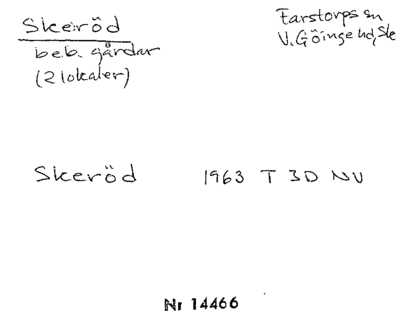 Skeröd
beb. gårdar
(2 lokaler)
Farstorps sn
V. Göinge hd, Sk
Skeröd 1963 T 3D NV
Nr 14466